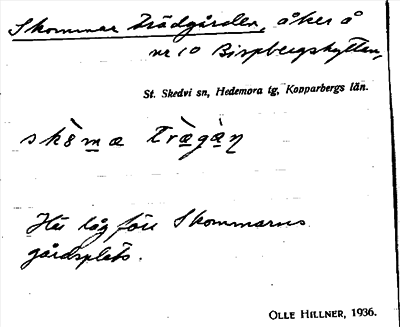 Skommar Trädgården, åker å
nr 10 Bispbergshyttan,
St. Skedvi sn, Hedemora tg, Kopparbergs län.
skò̀ma trǽgàn
Här låg förr Skommarns
gårdsplats.
OLLE HILLNER, 1936.